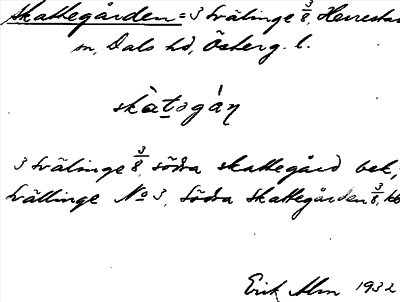 Skattegården = 3 Svälinge 3/8, Herresta
sn, Dals hd, Österg. l.
skàtogá̀ɳ
3 Svälinge 3/8, södra skattegård bek,
Svällinge No 3, Södra Skattegården 3/8,
Erik Alm 1932